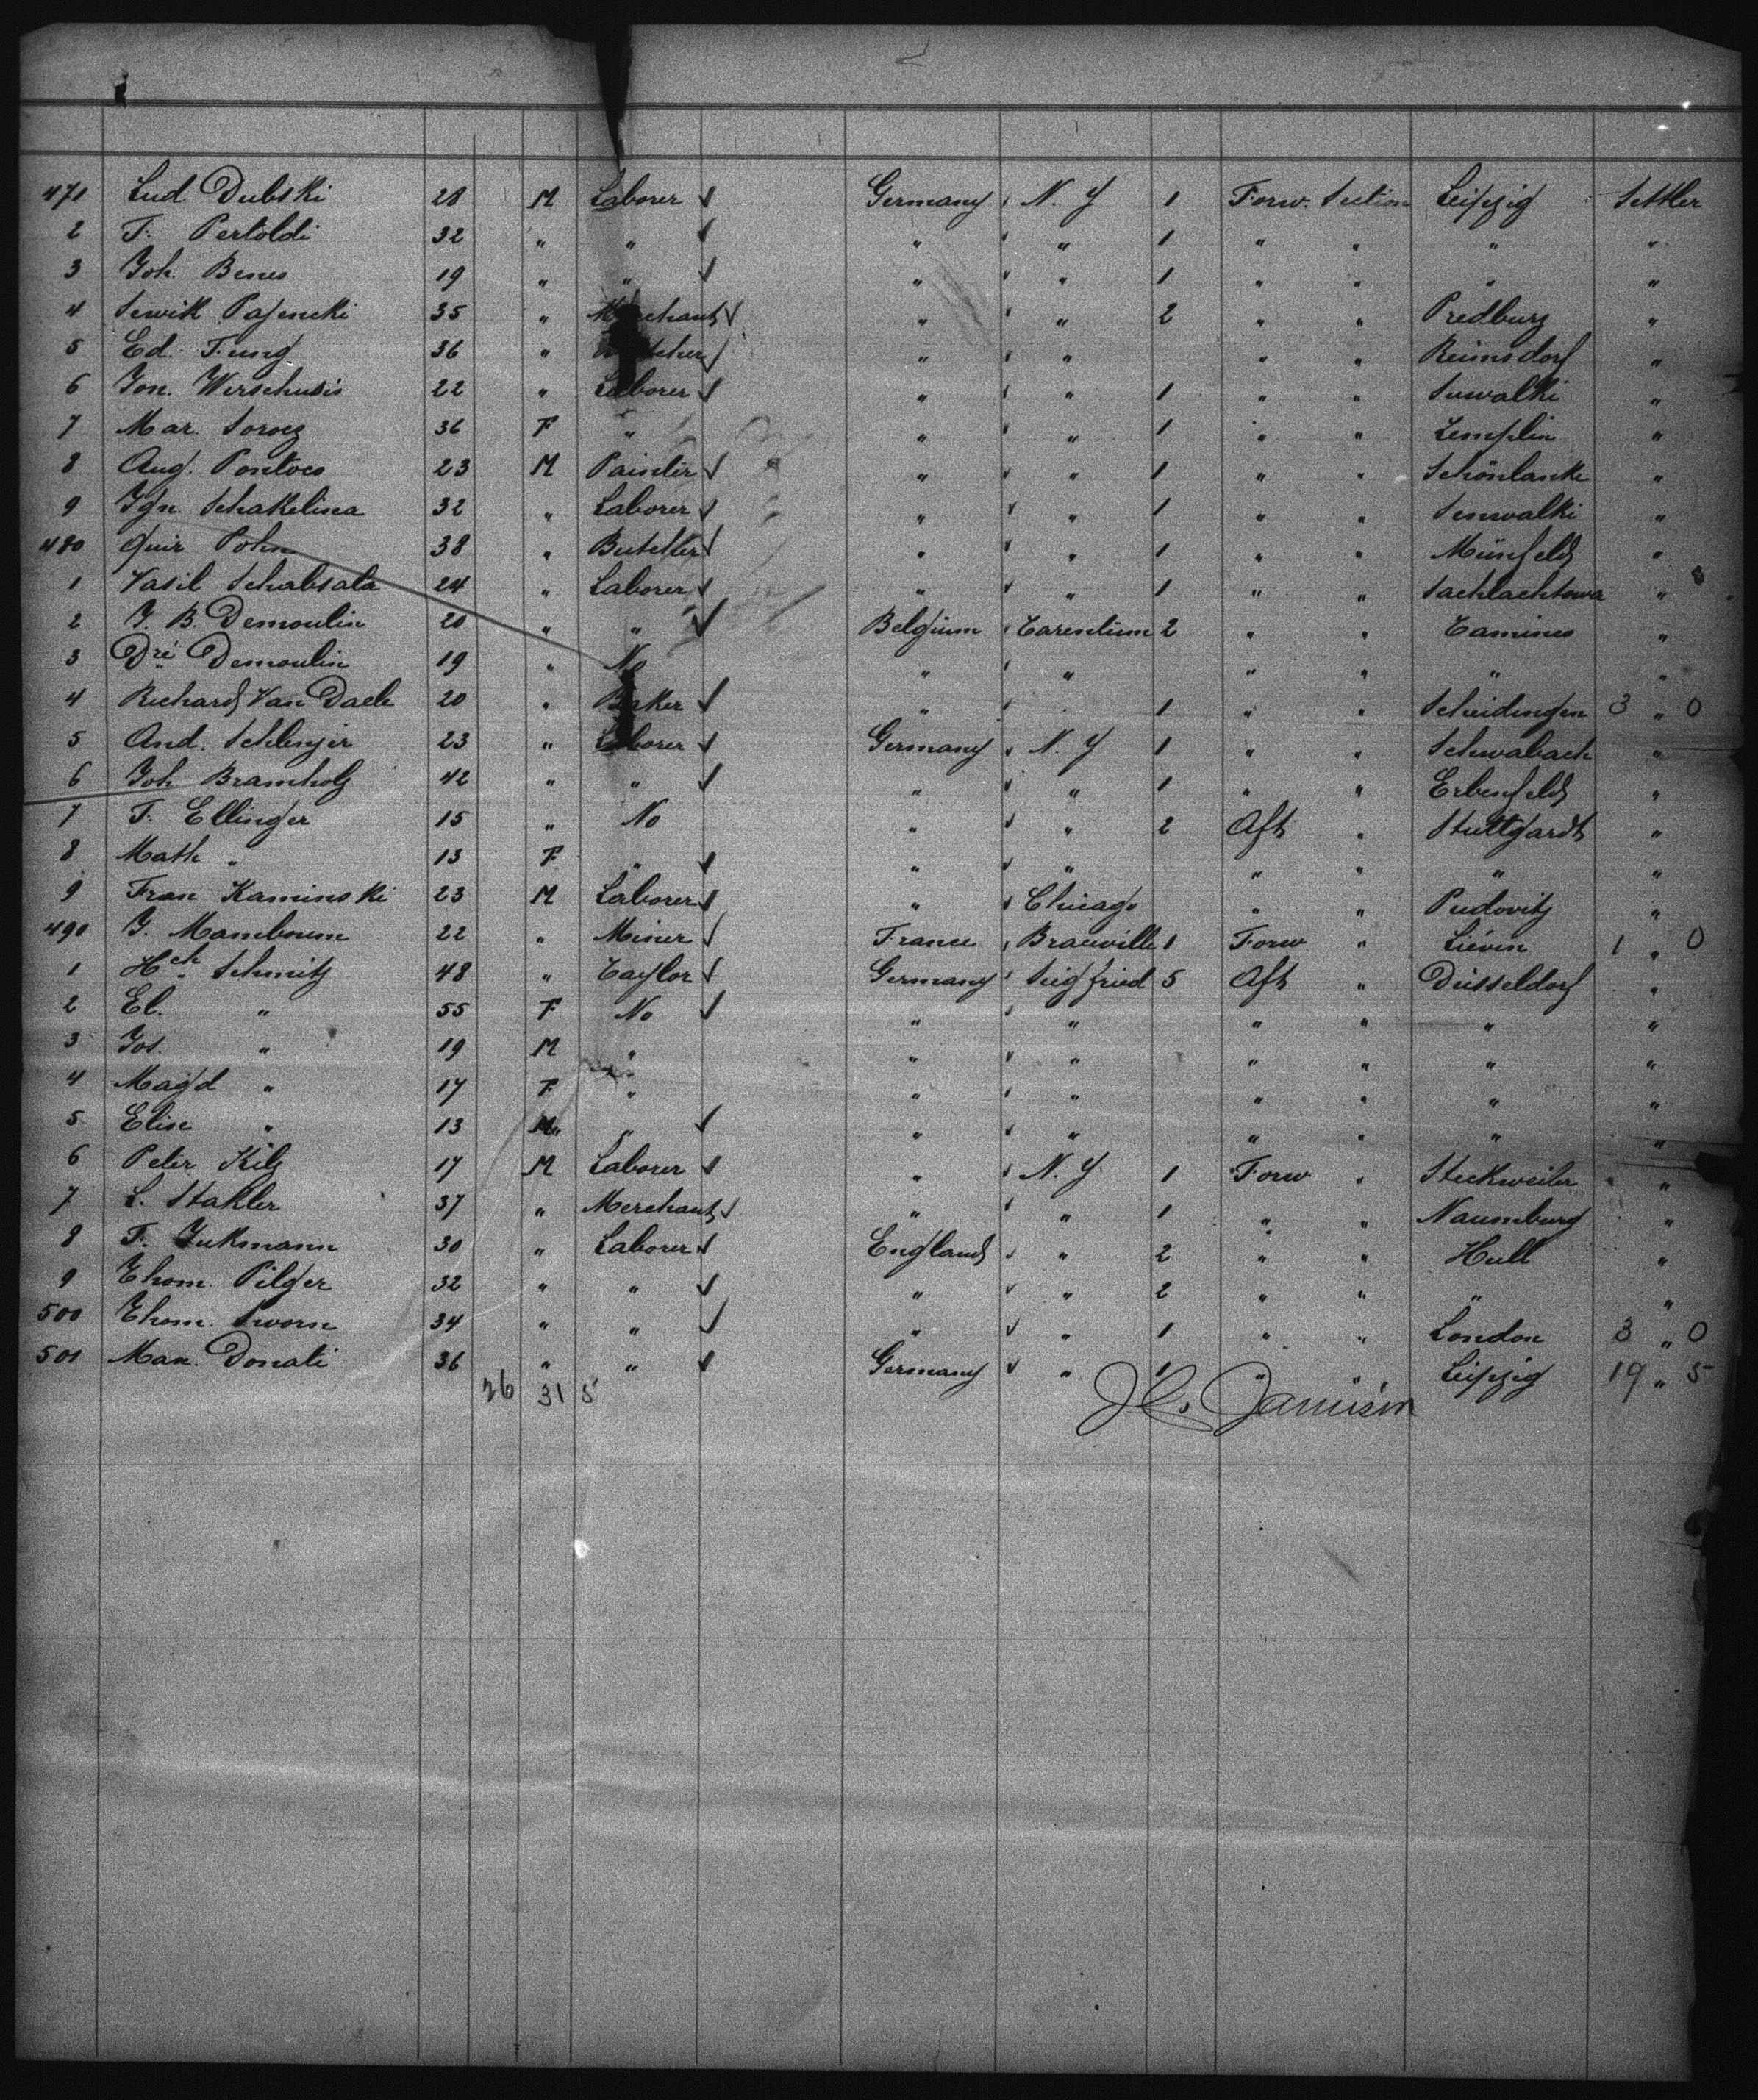 471 Lud Dubski 28 M Laborer ✓ Germany N. Y 1 Forw. Section Leipzig Settler
2 F. Pertoldi 32 " " ✓ " " 1 " " " "
3 Joh. Benes 19 " " ✓ " " 1 " " " "
4 Sewik Pajencki 35 " Merchant ✓ " " 2 " " Predburg "
5 Ed. Fung 36 " " " " " Reimsdorf "
6 Jon. Werschusis 22 " Laborer ✓ " " 1 " " Suwalki "
7 Mar. 36 F " " " 1 " " Templin "
8 Aug. Pontoes 23 M Painter ✓ " " 1 " " Schönlanke "
9 Ign. Schakelinea 32 " Laborer ✓ " " 1 " " Senwalki "
480 Quir Pohn 38 " Butcher ✓ " " 1 " " Münfeld "
1 Vasil Schabsata 24 " Laborer ✓ " " 1 " " Sachlachtowa "
2 J. B. Demoulin 20 " " ✓ Belgium Tarentium 2 " " Tamines "
3 Dré Demoulin 19 " No " " " " " "
4 Richard Van Daele 20 " Baker ✓ " 1 " " Scheidingen 3 " 0
5 And. Schlenjer 23 " Laborer ✓ Germany N. Y 1 " " Schwabach "
6 Joh Bramholz 42 " " ✓ " " 1 " " Erbenfeld "
7 F. Ellinger 15 " No " " 2 Aft " Stuttgardt "
8 Math " 13 F " ✓ " " " " " "
9 Fran Kaminski 23 M Laborer ✓ " Chicago " " Pudovitz "
490 J. Mambourn 22 " Miner ✓ France Braeville 1 Forw " Liévin 1 " 0
1 Hch Schmitz 48 " Taylor ✓ Germany Siegfried 5 Aft " Düsseldorf "
2 El. " 55 F No ✓ " " " " " "
3 Jos. " 19 M " " " " " " "
4 Magd " 17 F " " " " " " "
5 Elise " 13 M " ✓ " " " " " "
6 Peter Kilz 17 M Laborer ✓ " N. Y 1 Forw " Steckweiler "
7 L. Stahler 37 " Merchant ✓ " " 1 " " Naumburg "
8 F. Jukmann 30 " Laborer ✓ England " 2 " " Hull "
9 Thom. Pilger 32 " " ✓ " " 2 " " " "
500 Thom. Sworn 34 " " ✓ " " 1 " " London 3 " 0
501 Max. Donati 36 " " ✓ Germany " 1 " " Leipzig 19 " 5
26 31 5 Jamison